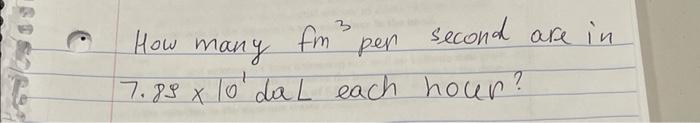 How many fm³ per second are in
7.89 × 10¹ daL each hour?